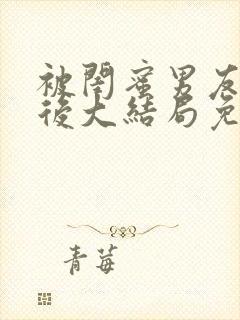 被閨蜜男友
後大結局免
青莓